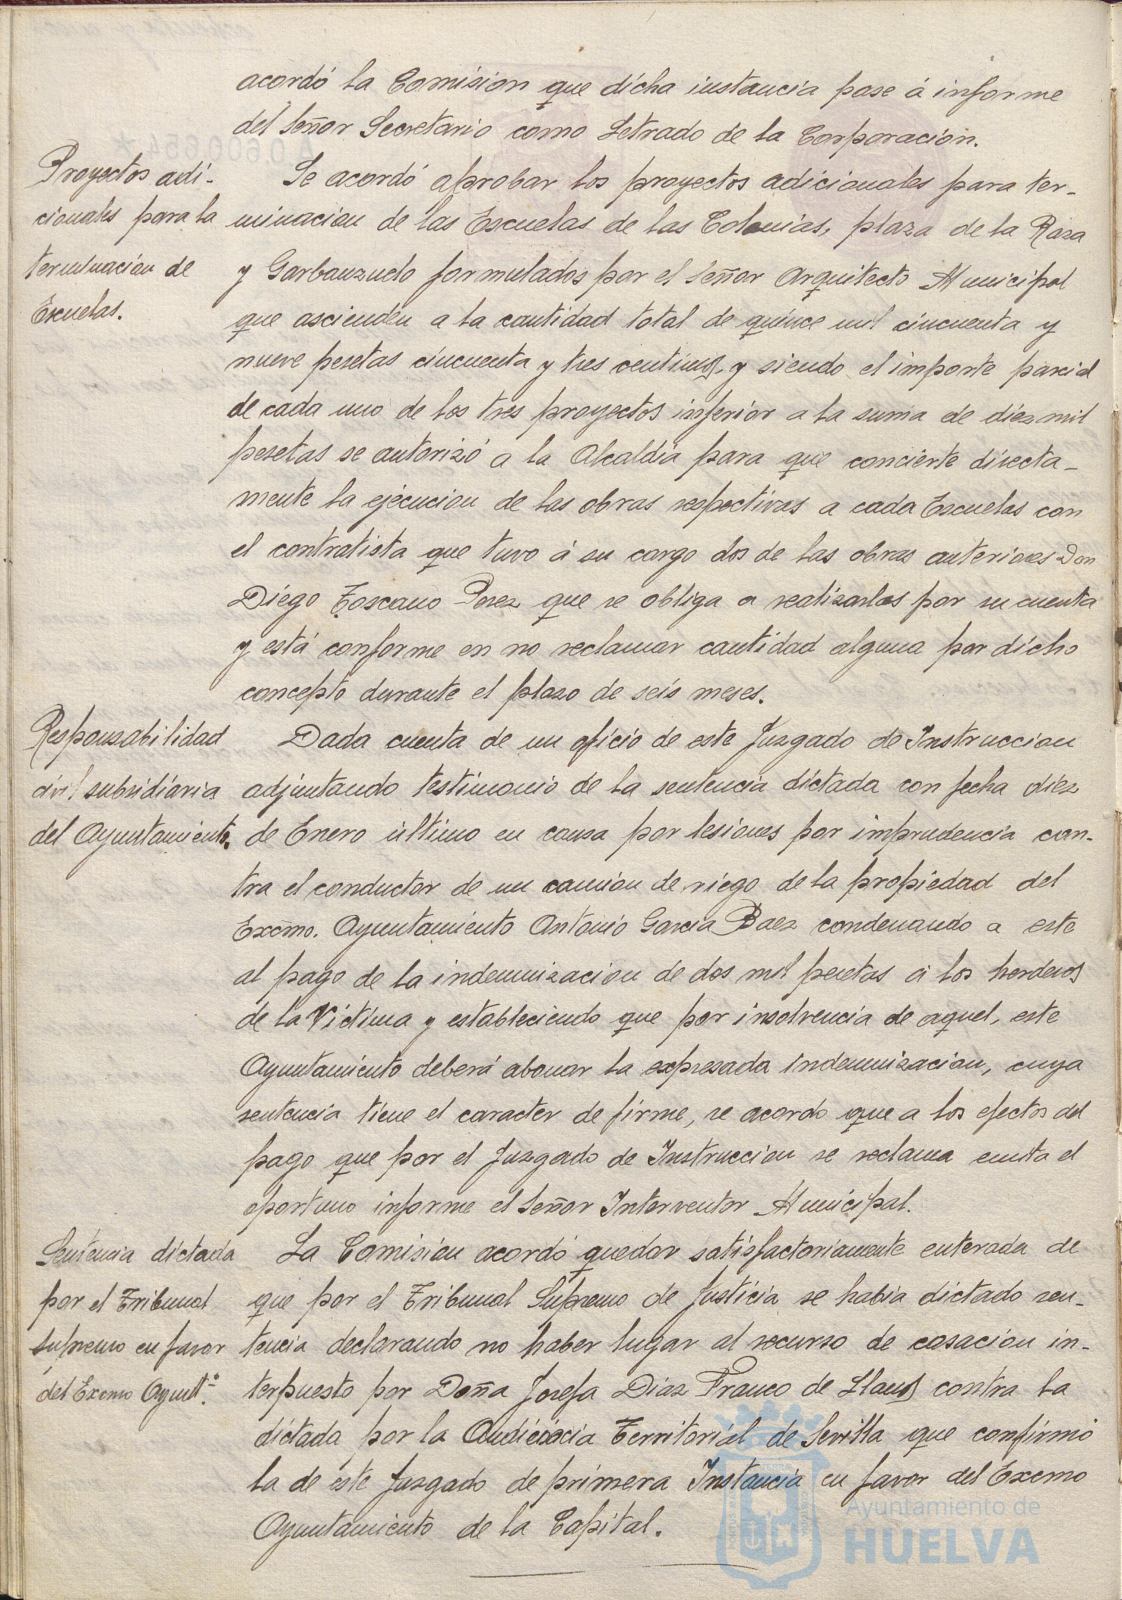 acordó la Comision que dicha instancia pase á informe
del Señor Secretario como Letrado de la Corporación.
Proyectos adi-
cionales para la
terminacion de
Escuelas.
Se acordó aprobar los proyectos adicionales para ter-
minacion de las Escuelas de las Colonias, plaza de la Raza
y Garbanzuelo formulados por el Señor Arquitecto Municipal
que ascienden a la cantidad total de quince mil cincuenta y
nueve pesetas cincuenta y tres centimos, y siendo el importe parcial
de cada uno de los tres proyectos inferior a la suma de diez mil
pesetas se autorizó a la Alcaldia para que concierte directa-
mente la ejecucion de las obras respectivas a cada Escuelas con
el contratista que tuvo á su cargo dos de las obras anteriores Don
Diego Toscano Perez que se obliga a realizarlas por su cuenta
y está conforme en no reclamar cantidad alguna por dicho
concepto durante el plazo de seis meses.
Responsabilidad
civil subsidiaria
del Ayuntamiento.
Dada cuenta de un oficio de este Juzgado de Instruccion
adjuntando testimonio de la sentencia dictada con fecha diez
de Enero último en causa por lesiones por imprudencia con-
tra el conductor de un camion de riego de la propiedad del
Excmo. Ayuntamiento Antonio Garcia Baez condenando a este
al pago de la indemnizacion de dos mil pesetas a los herederos
de la Victima y estableciendo que por insolvencia de aquel, este
Ayuntamiento deberá abonar la expresada indemnizacion, cuya
sentencia tiene el caracter de firme, se acordo que a los efectos del
pago que por el Juzgado de Instruccion se reclama emita el
oportuno informe el Señor Interventor Municipal.
Sentencia dictada
por el Tribunal
supremo en favor
del Excmo Ayuntº.
La Comision acordó quedar satisfactoriamente enterada de
que por el Tribunal Supremo de Justicia se habia dictado sen-
tencia declarando no haber lugar al recurso de casacion in-
terpuesto por Doña Josefa Diaz Franco de Llanos contra la
dictada por la Audiencia Territorial de Sevilla que confirmó
la de este Juzgado de primera Instancia en favor del Excmo
Ayuntamiento de la Capital.
Ayuntamiento de
HUELVA